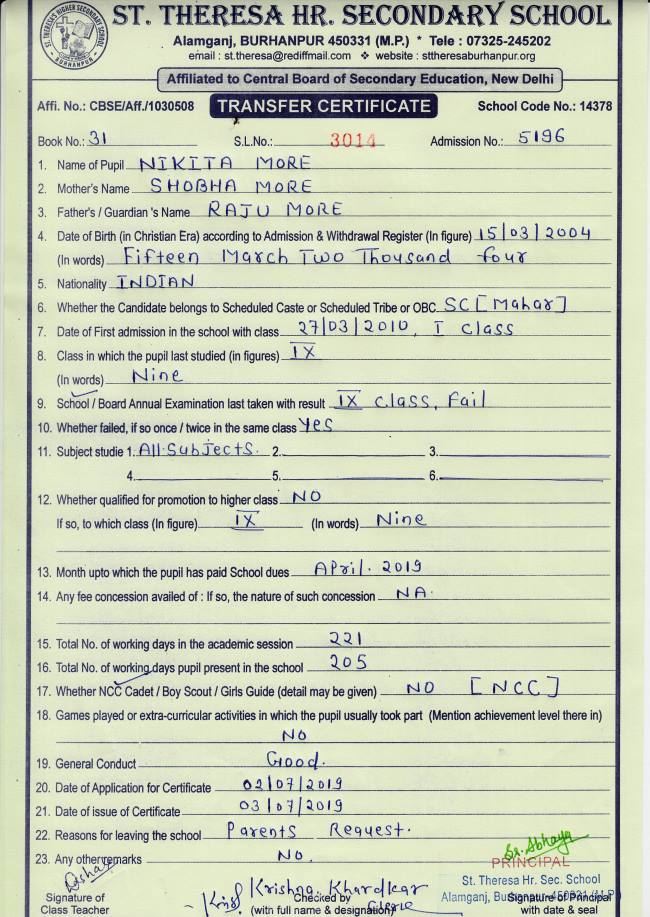 ST. THERESA HR. SECONDARY SCHOOL
Alamganj, BURHANPUR 450331 (M.P.) * Tele : 07325-245202
email : st.theresa@rediffmail.com ❖ website : sttheresaburhanpur.org
Affiliated to Central Board of Secondary Education, New Delhi
Affi. No.: CBSE/Aff./1030508 TRANSFER CERTIFICATE School Code No.: 14378
Book No.: 31 S.L.No.: 3014 Admission No.: 5196
1. Name of Pupil NIKITA MORE
2. Mother's Name SHOBHA MORE
3. Father's / Guardian 's Name RAJU MORE
4. Date of Birth (in Christian Era) according to Admission & Withdrawal Register (In figure) 15/03/2004
(In words) Fifteen March Two Thousand four
5. Nationality INDIAN
6. Whether the Candidate belongs to Scheduled Caste or Scheduled Tribe or OBC SC [Mahar]
7. Date of First admission in the school with class 27/03/2010, I Class
8. Class in which the pupil last studied (in figures) IX
(In words) Nine
9. School / Board Annual Examination last taken with result IX Class, Fail
10. Whether failed, if so once / twice in the same class Yes
11. Subject studie 1. All Subjects. 2. 3.
4. 5. 6.
12. Whether qualified for promotion to higher class NO
If so, to which class (In figure) IX (In words) Nine
13. Month upto which the pupil has paid School dues April. 2019
14. Any fee concession availed of : If so, the nature of such concession NA.
15. Total No. of working days in the academic session 221
16. Total No. of working days pupil present in the school 205
17. Whether NCC Cadet / Boy Scout / Girls Guide (detail may be given) NO [NCC]
18. Games played or extra-curricular activities in which the pupil usually took part (Mention achievement level there in)
NO
19. General Conduct Good.
20. Date of Application for Certificate 02/07/2019
21. Date of issue of Certificate 03/07/2019
22. Reasons for leaving the school Parents Request.
23. Any other remarks No.
Sr. Abhaya
PRINCIPAL
St. Theresa Hr. Sec. School
Alamganj, Burhanpur-450331 (M.P.)
Krishna Khardkar
Signature of Checked by Signature of Principal
Class Teacher (with full name & designation) Clerk with date & seal